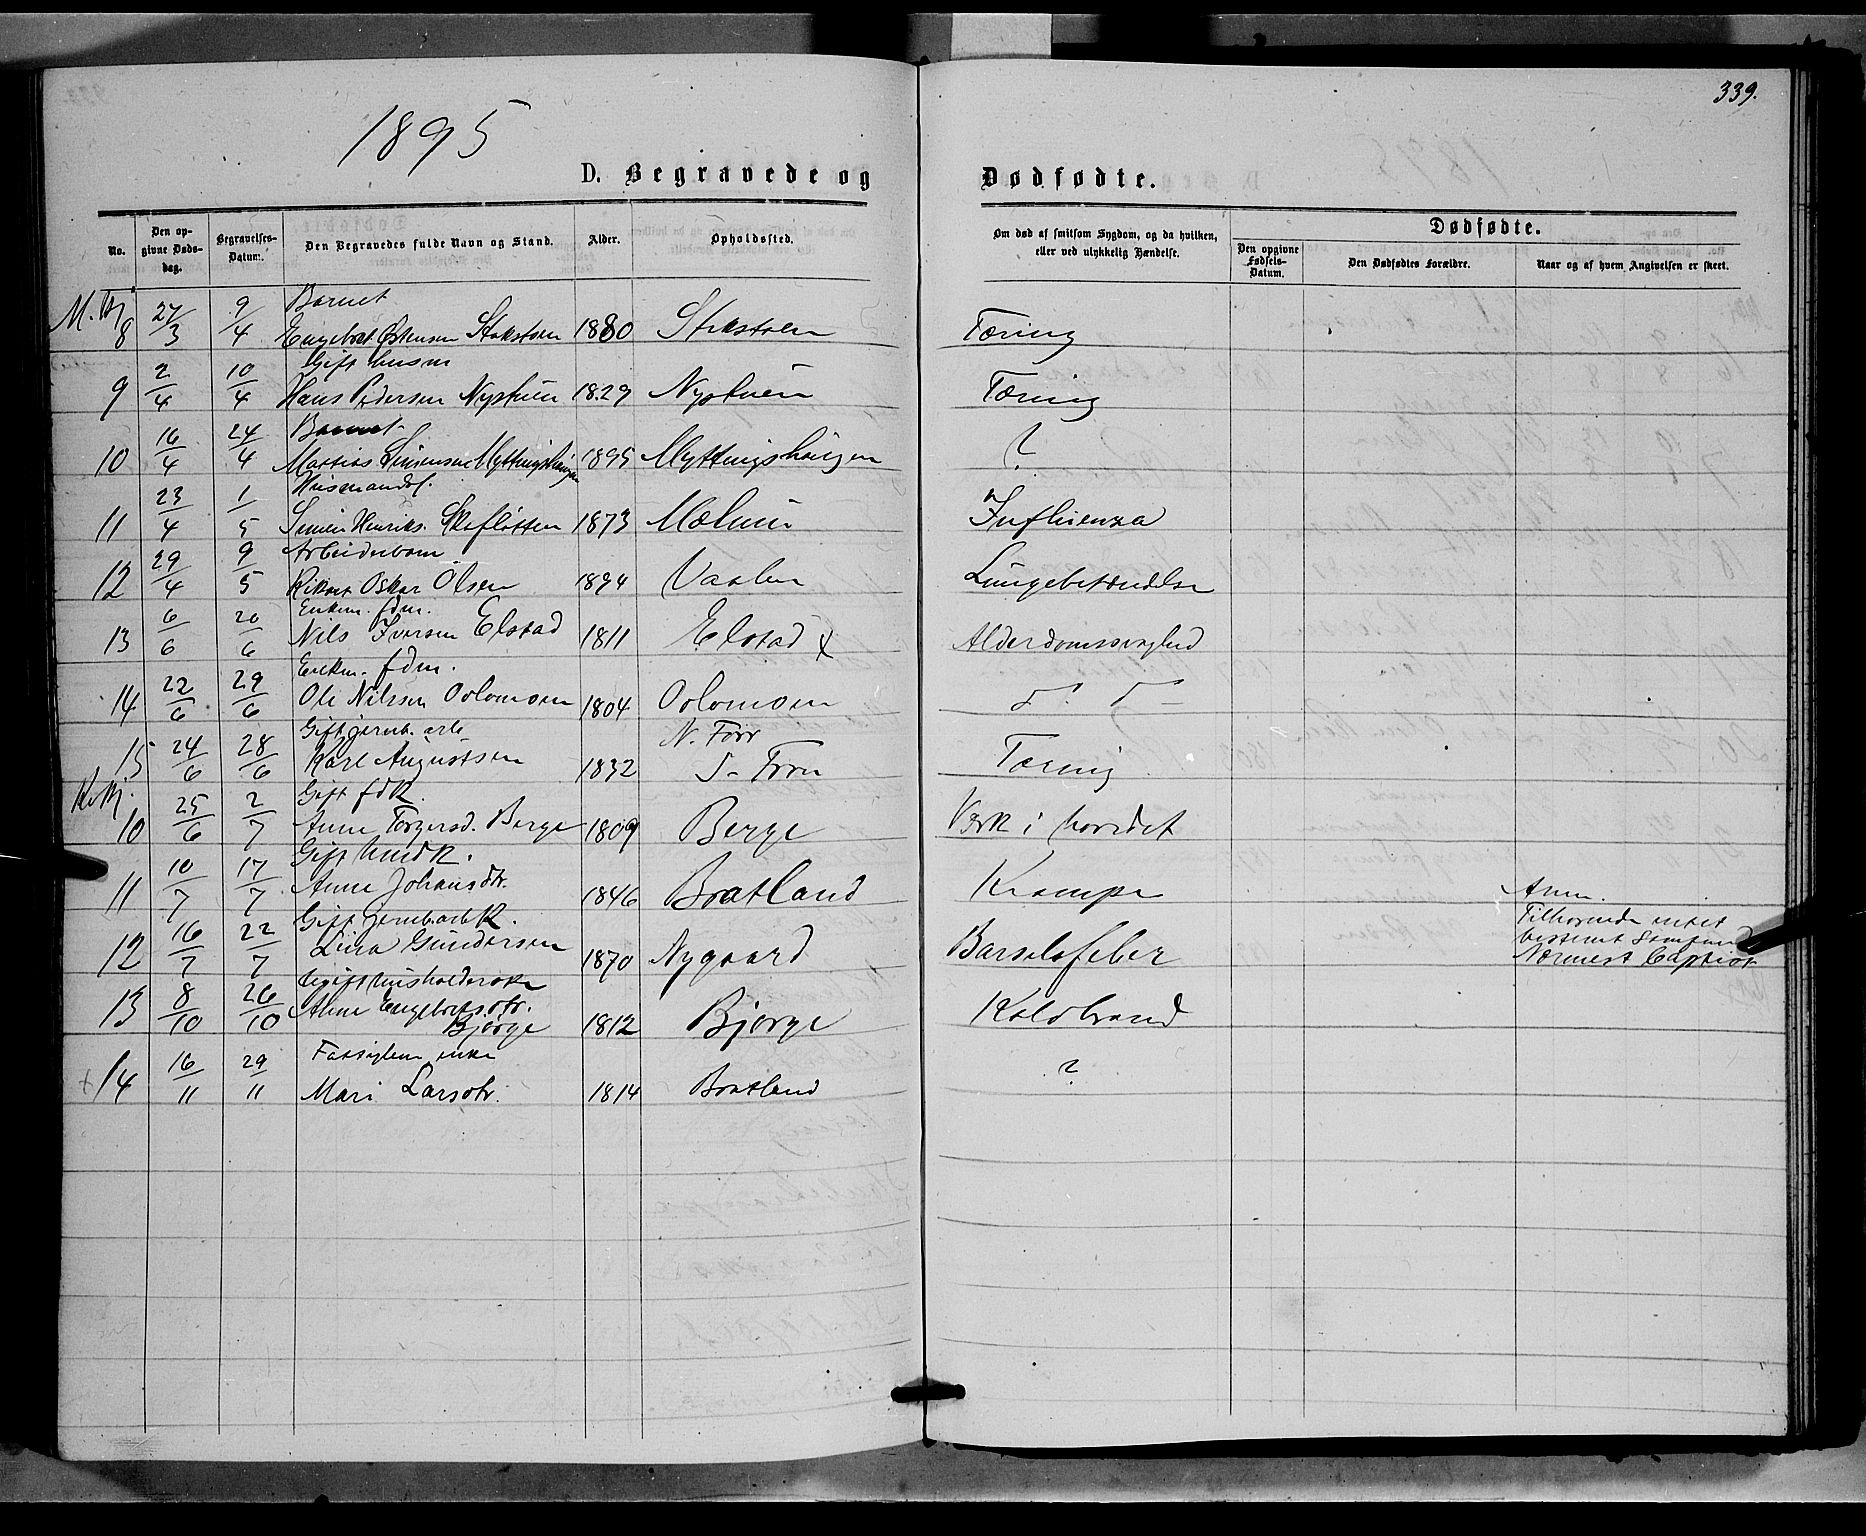 339.
1895
D. Begravede og Dødfødte.
No. Den opgivne Dødsdag. Begravelses-Datum. Den Begravedes fulde Navn og Stand. Alder. Opholdssted. Om død af smitsom Sygdom, og da hvilken, eller ved ulykkelig Hændelse. Dødfødte.
Den opgivne Fødsels-Datum. Den Dødfødtes Forældre. Naar og af hvem Angivelsen er skeet.
M. Kj. Barnet
8 27/3 9/4 Engebret Østensen Stokstoen 1880 Stokstoen Tæring
Gift husm
9 2/4 10/4 Hans Pedersen Nystuen 1829 Nystuen Tæring
Barnet
10 16/4 24/4 Mattias Simensen Myttingshaugen 1895 Myttingshaugen ?
Husmands.
11 23/4 1/5 Simen Henriks. Skefløtten 1873 Mælum Influenza
Arbeiderbarn
12 29/4 9/5 Rikart Oskar Olsen 1894 Vaalen Lungebetændelse
Enkem. fdm.
13 6/6 20/6 Nils Iversen Elstad 1811 Elstad x Alderdomssvaghed
Enkem. fdm.
14 22/6 29/6 Ole Nilssen Odlomoen 1804 Odlomoen d° d°
Gift jernb. arb N. Forr
15 24/6 28/6 Karl Augustsen 1832 S- Fron Tæring
Kv.kj. Gift fdk.
10 25/6 2/7 Anne Torgersd. Berge 1809 Berge Værk i hovedet
Gift husmk.
11 10/7 17/7 Anne Johansdtr. 1846 Bratland Krampe
Gift jernb.arb.K. Anm.
12 16/7 22/7 Lina Gundersen 1870 Nygaard Barselsfeber Tilhørende intet
bestemt Samfund
Nærmest Baptist
Ugift husholderske
13 8/10 26/10 Anne Engebretsdtr.
Bjørge 1812 Bjørge Koldbrand
Fattiglem enke
14 16/11 29/11 Mari Larsdtr. 1814 Bratland ?